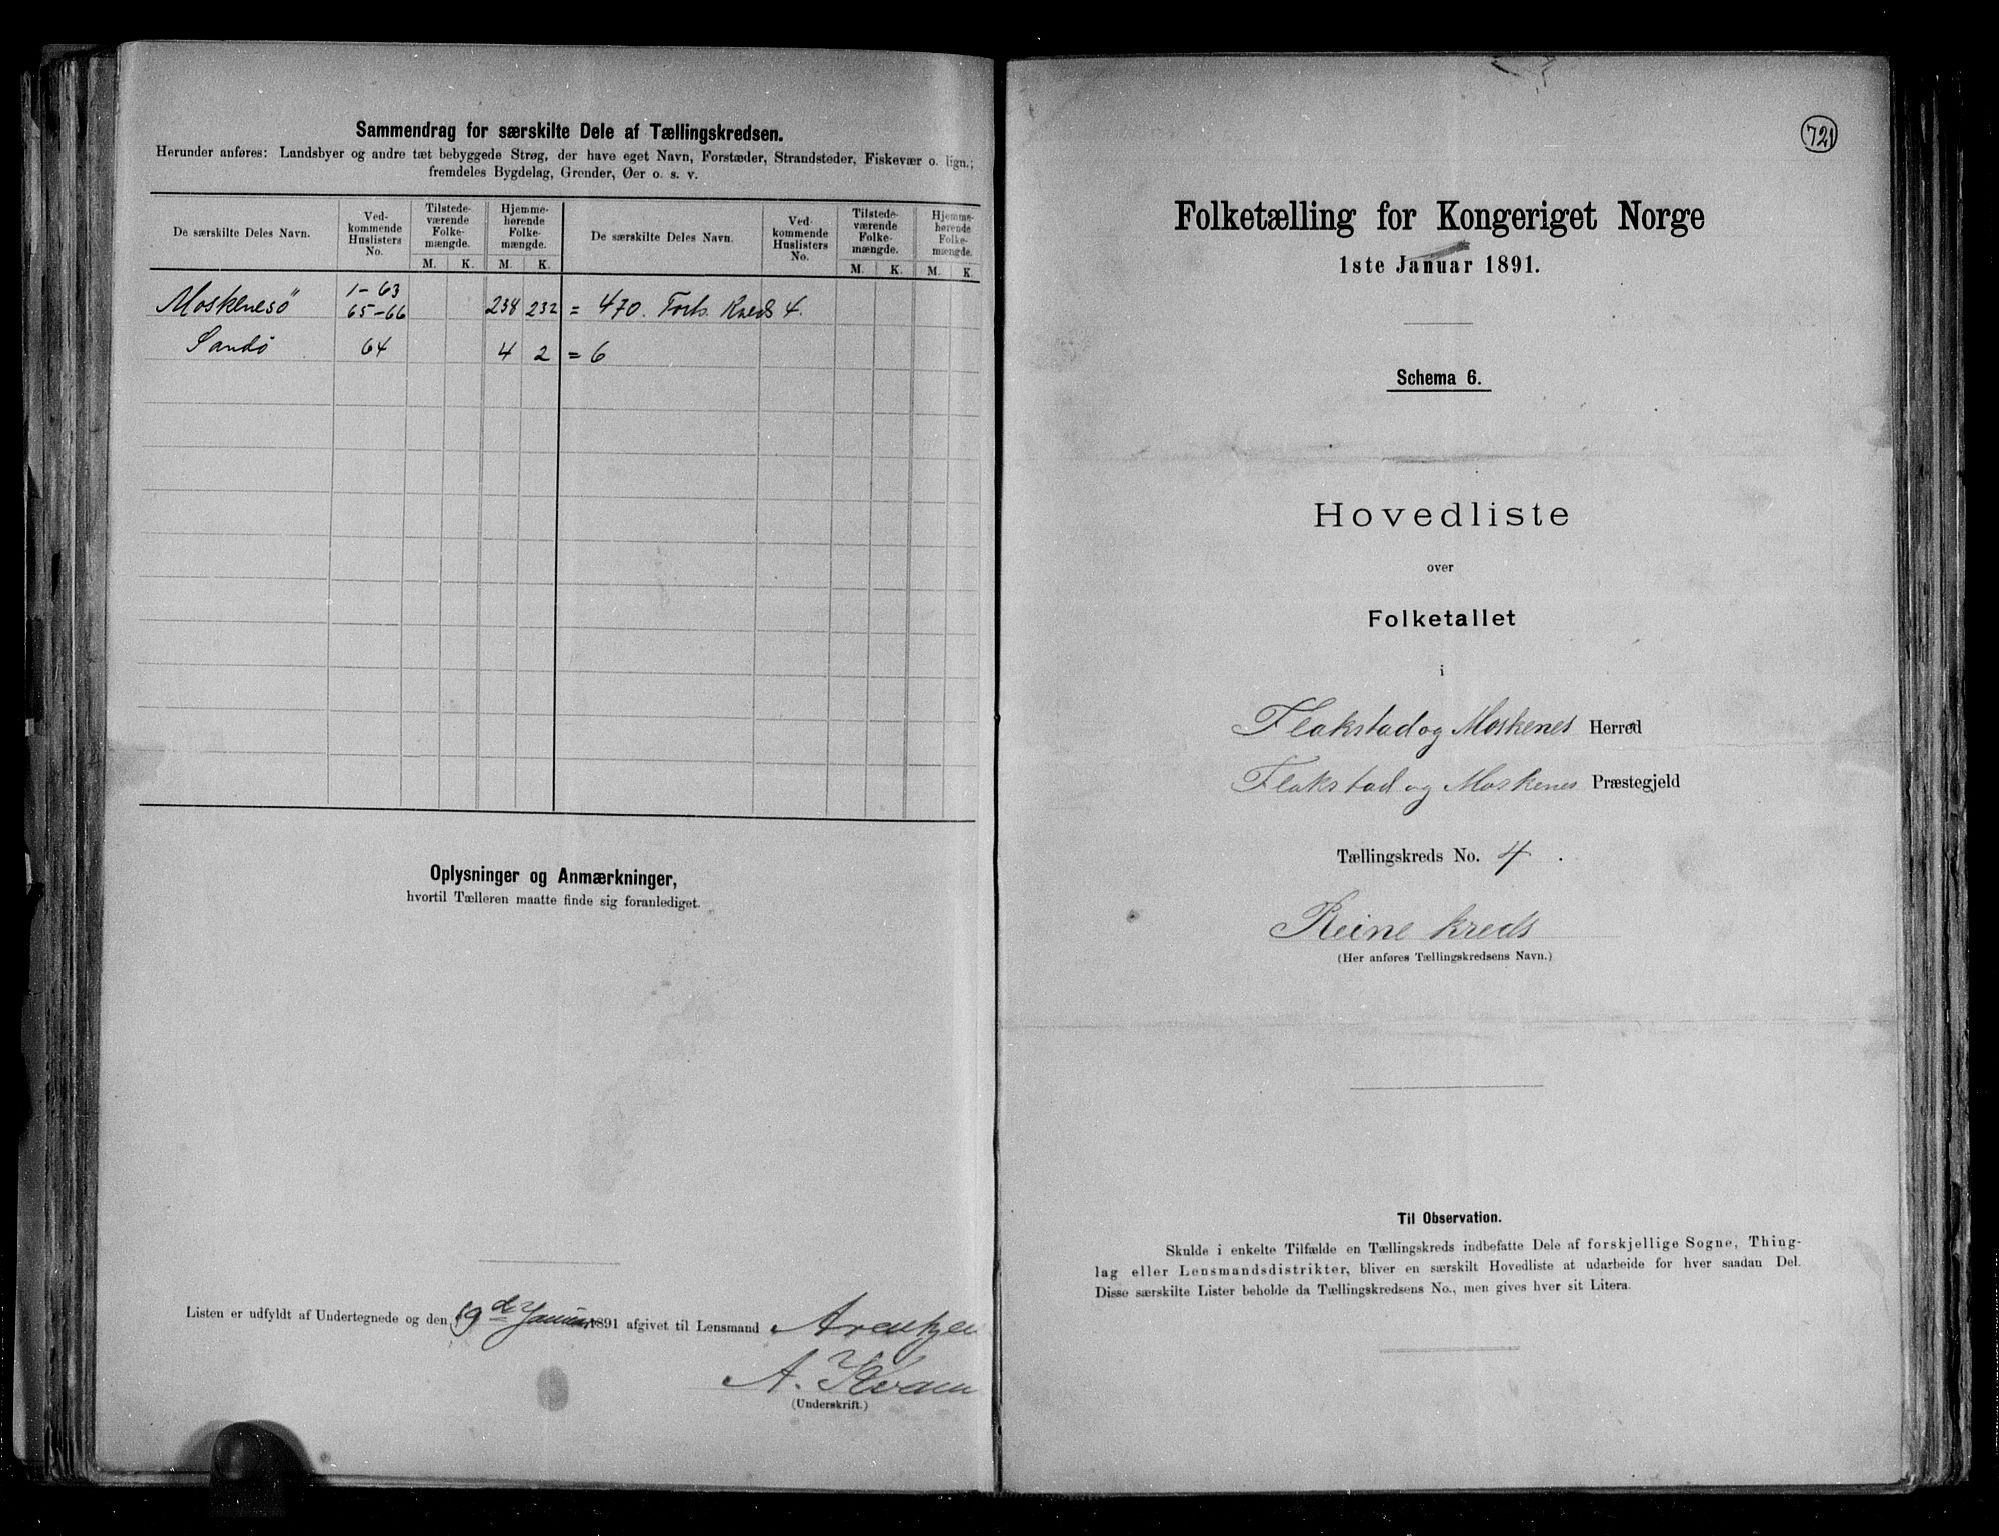 Sammendrag for særskilte Dele af Tællingskredsen.
Herunder anføres: Landsbyer og andre tæt bebyggede Strøg, der have eget Navn, Forstæder, Strandsteder, Fiskevær o. lign.;
fremdeles Bygdelag, Grender, Øer o. s. v.
De særskilte Deles Navn. Ved-kommende Huslisters No. Tilstede-værende Folke-mængde. Hjemme-hørende Folke-mængde. De særskilte Deles Navn. Ved-kommende Huslisters No. Tilstede-værende Folke-mængde. Hjemme-hørende Folke-mængde.
M. K. M. K. M. K. M. K.
1-63
Moskenesö 65-66 238 232 = 470. Forts. Kreds 4.
Sandö 64 4 2 = 6
Oplysninger og Anmærkninger,
hvortil Tælleren maatte finde sig foranlediget.
Listen er udfyldt af Undertegnede og den 19d Januar 1891 afgivet til Lensmand Arentzen
A. Kvam
(Underskrift.)
721
Folketælling for Kongeriget Norge
1ste Januar 1891.
Schema 6.
Hovedliste
over
Folketallet
i
Flakstad og Moskenes Herred
Flakstad og Moskenes Præstegjeld
Tællingskreds No. 4.
Reine kreds
(Her anføres Tællingskredsens Navn.)
Til Observation.
Skulde i enkelte Tilfælde en Tællingskreds indbefatte Dele af forskjellige Sogne, Thing-
lag eller Lensmandsdistrikter, bliver en særskilt Hovedliste at udarbeide for hver saadan Del.
Disse særskilte Lister beholde da Tællingskredsens No., men gives hver sit Litera.